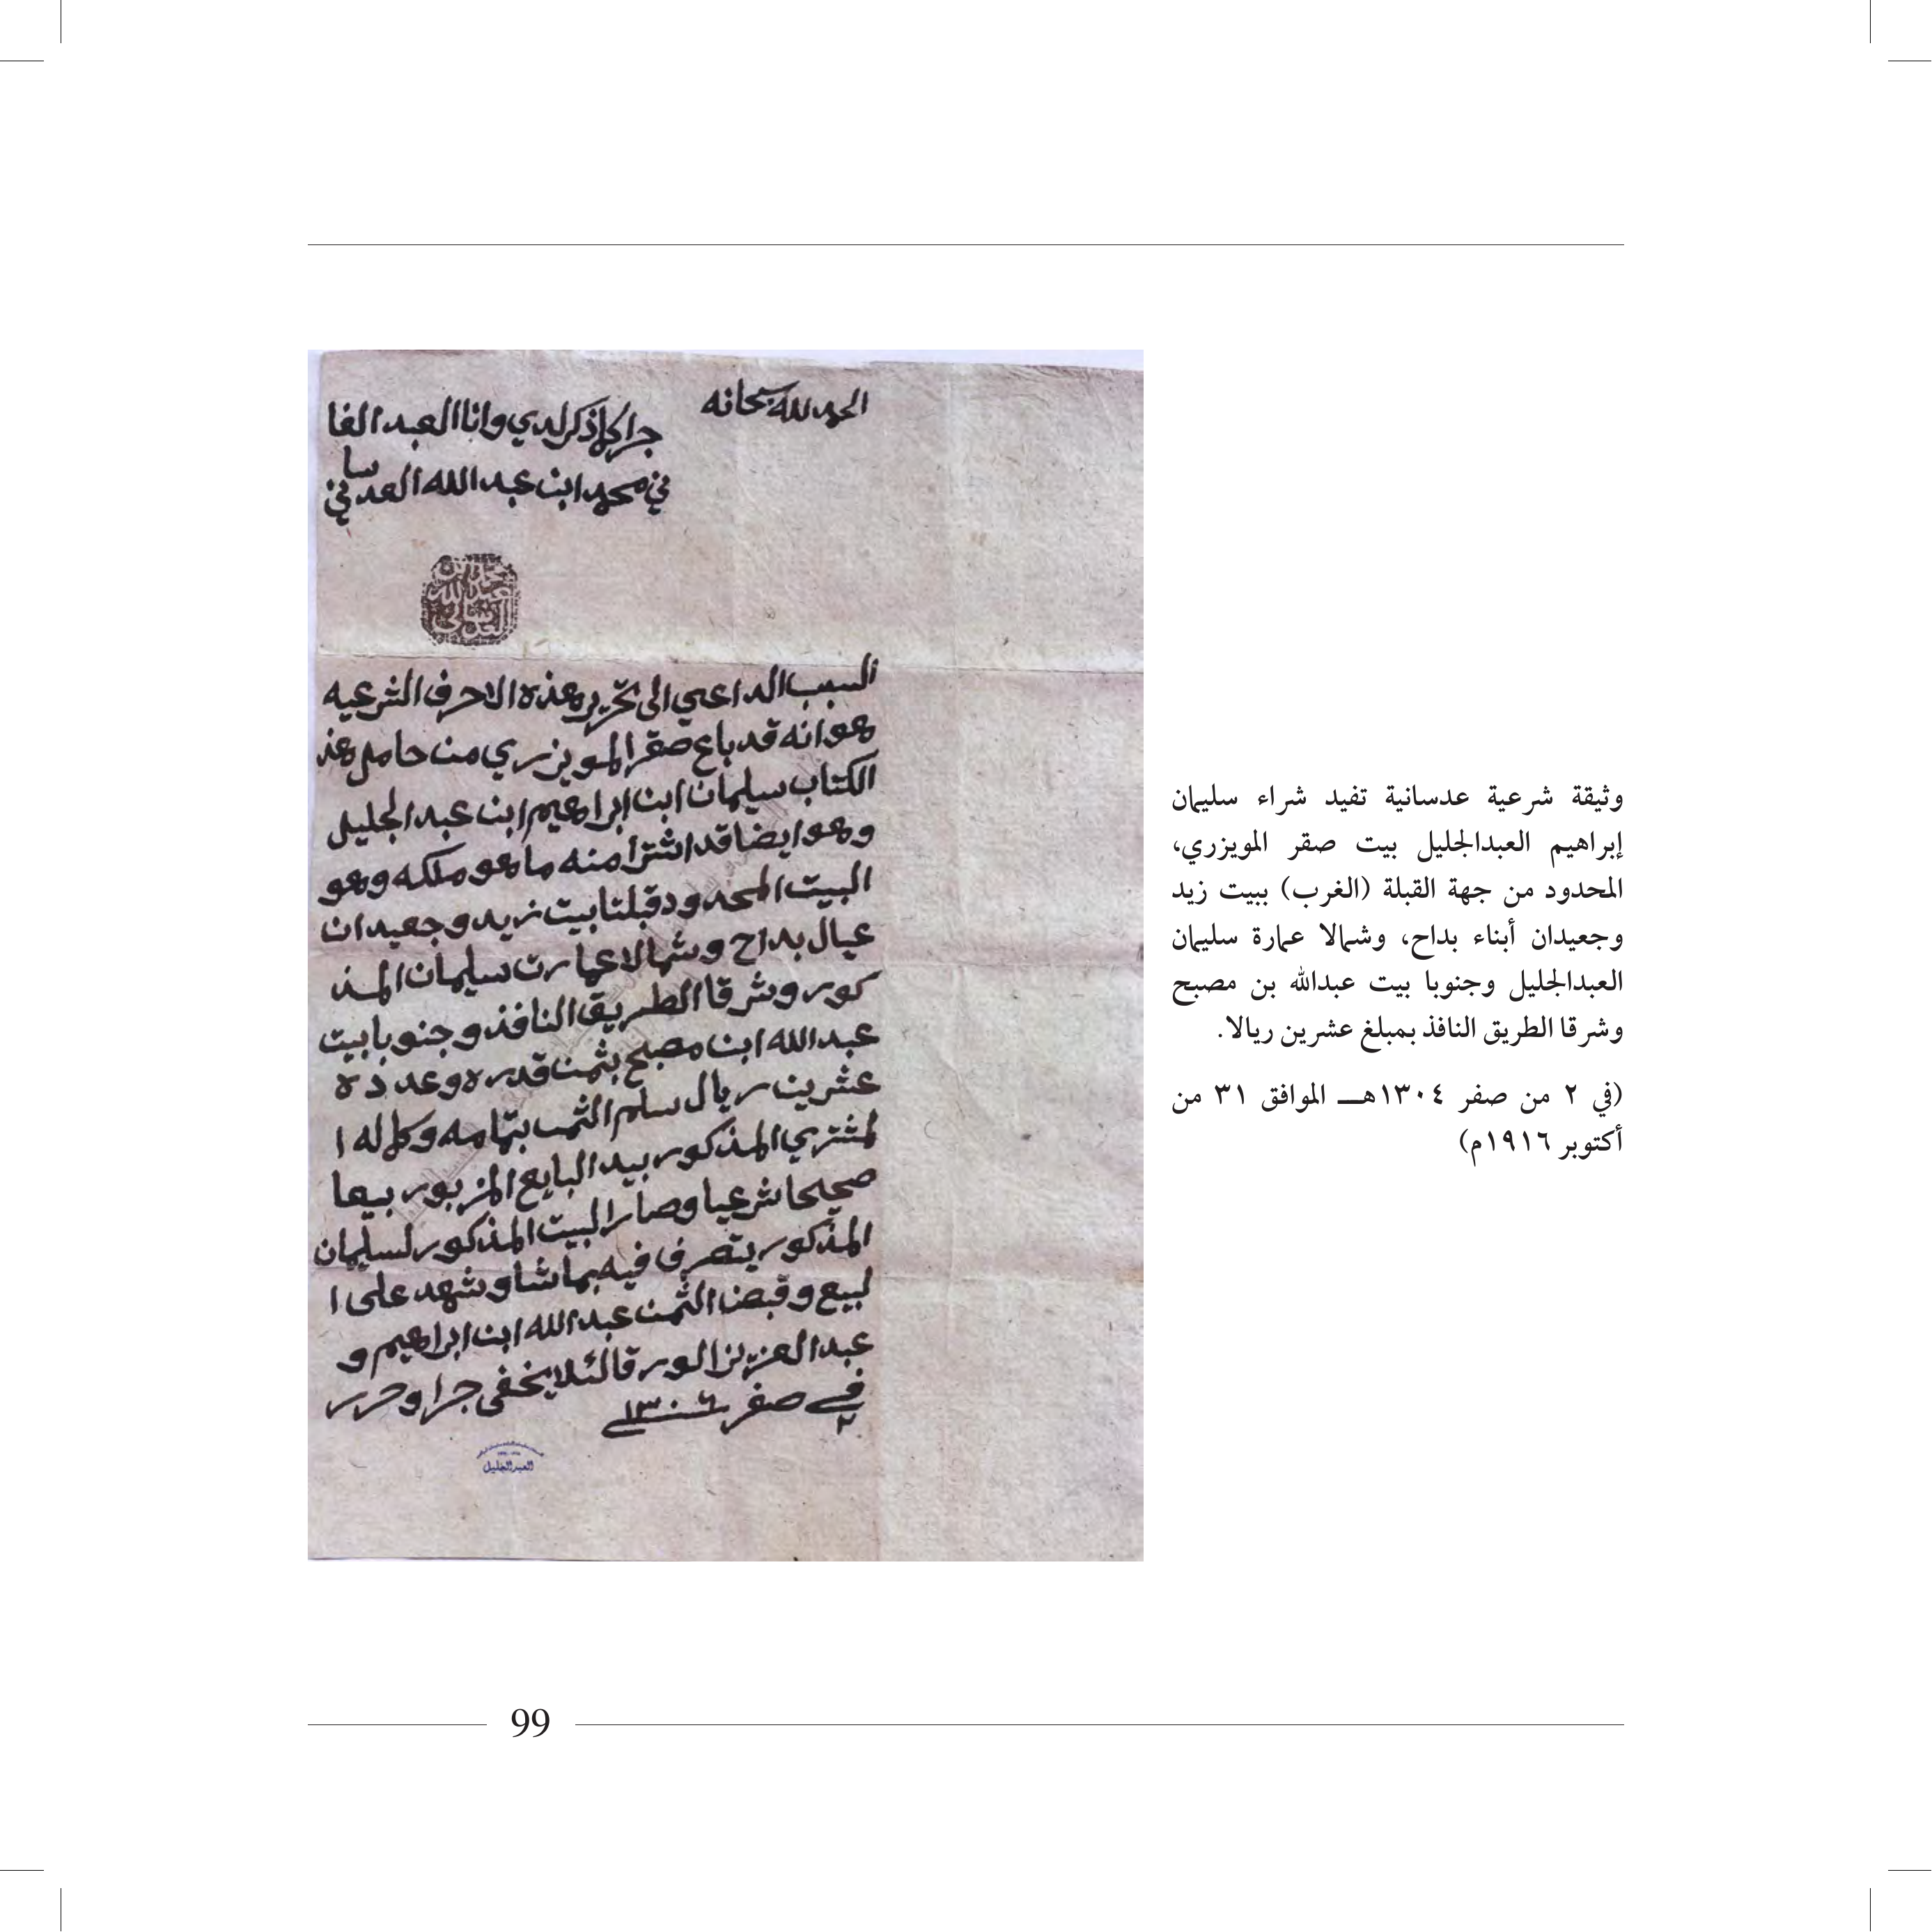 الحمد لله سبحانه
جرا كما ذكر لدي وانا العبد الفا
ني محمد ابن عبد الله العدساني
محمد بن عبدالله العدساني
السبب الداعي الى تحرير هذه الاحرف الشرعيه
هو انه قد باع صقر المويزري من حامل هذ
الكتاب سليمان ابن ابراهيم ابن عبد الجليل
وهو ايضا قد اشترا منه ما هو ملكه وهو
البيت المحدود قبلتا بيت زيد وجعيدان
عيال بداح وشمالا عمارت سليمان المذ
كور وشرقا الطريق النافذ وجنوبا بيت
عبد الله ابن مصبح بثمن قدره وعدده
عشرين ريال سلم الثمن بتمامه وكماله ا
لمشتري المذكور بيد البايع المزبور بيعا
صحيحا شرعيا وصار البيت المذكور لسليمان
المذكور يتصرف فيه بما شا وشهد على ا
لبيع وقبض الثمن عبد الله ابن ابراهيم و
عبد العزيز الورقا لئلا يخفى جرا وحرر
في ٢ صفر ١٣٠٤
العبدالجليل
وثيقة شرعية عدسانية تفيد شراء سليمان
إبراهيم العبدالجليل بيت صقر المويزري،
المحدود من جهة القبلة (الغرب) ببيت زيد
وجعيدان أبناء بداح، وشمالا عمارة سليمان
العبدالجليل وجنوبا بيت عبدالله بن مصبح
وشرقا الطريق النافذ بمبلغ عشرين ريالا.
(في ٢ من صفر ١٣٠٤هـ الموافق ٣١ من
أكتوبر ١٩١٦م)
99